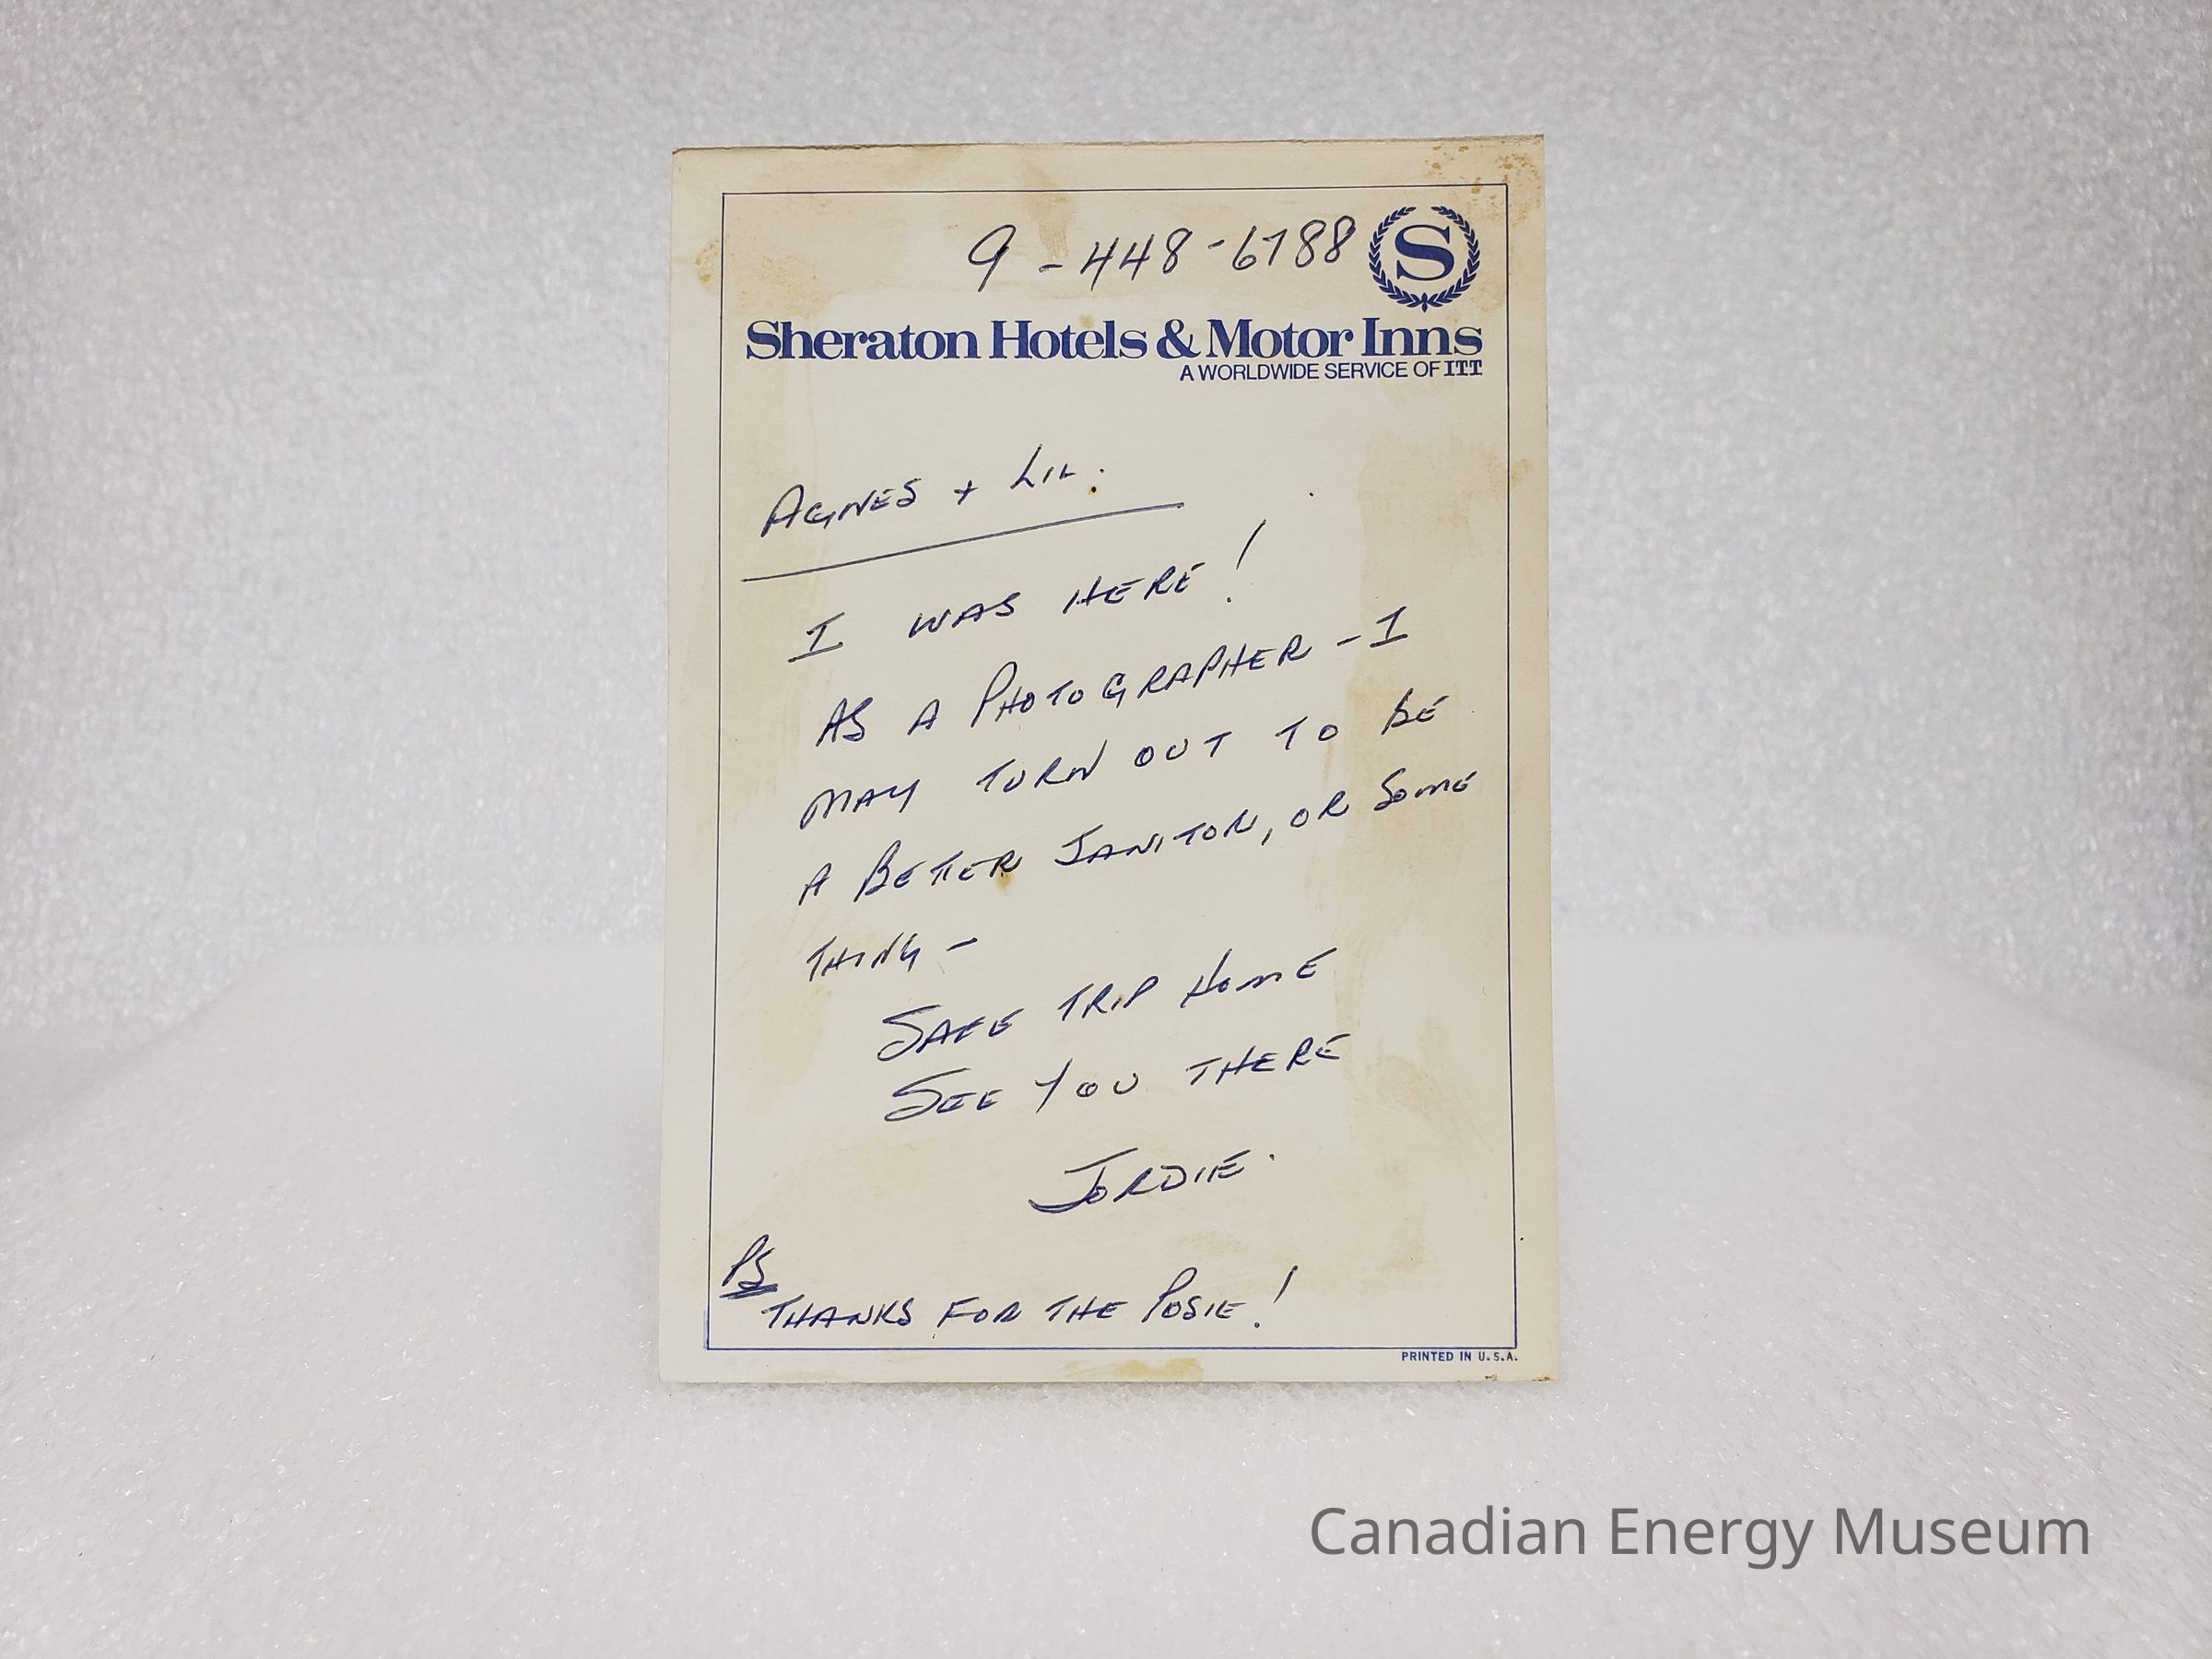 9 - 448-6788
S
Sheraton Hotels & Motor Inns
A WORLDWIDE SERVICE OF ITT
AGNES + LIL:
I WAS HERE!
AS A PHOTOGRAPHER - I
MAY TURN OUT TO BE
A BETTER JANITOR, OR SOME
THING -
SAFE TRIP HOME
SEE YOU THERE
JORDIE.
PS
THANKS FOR THE POSIE!
PRINTED IN U.S.A.
Canadian Energy Museum